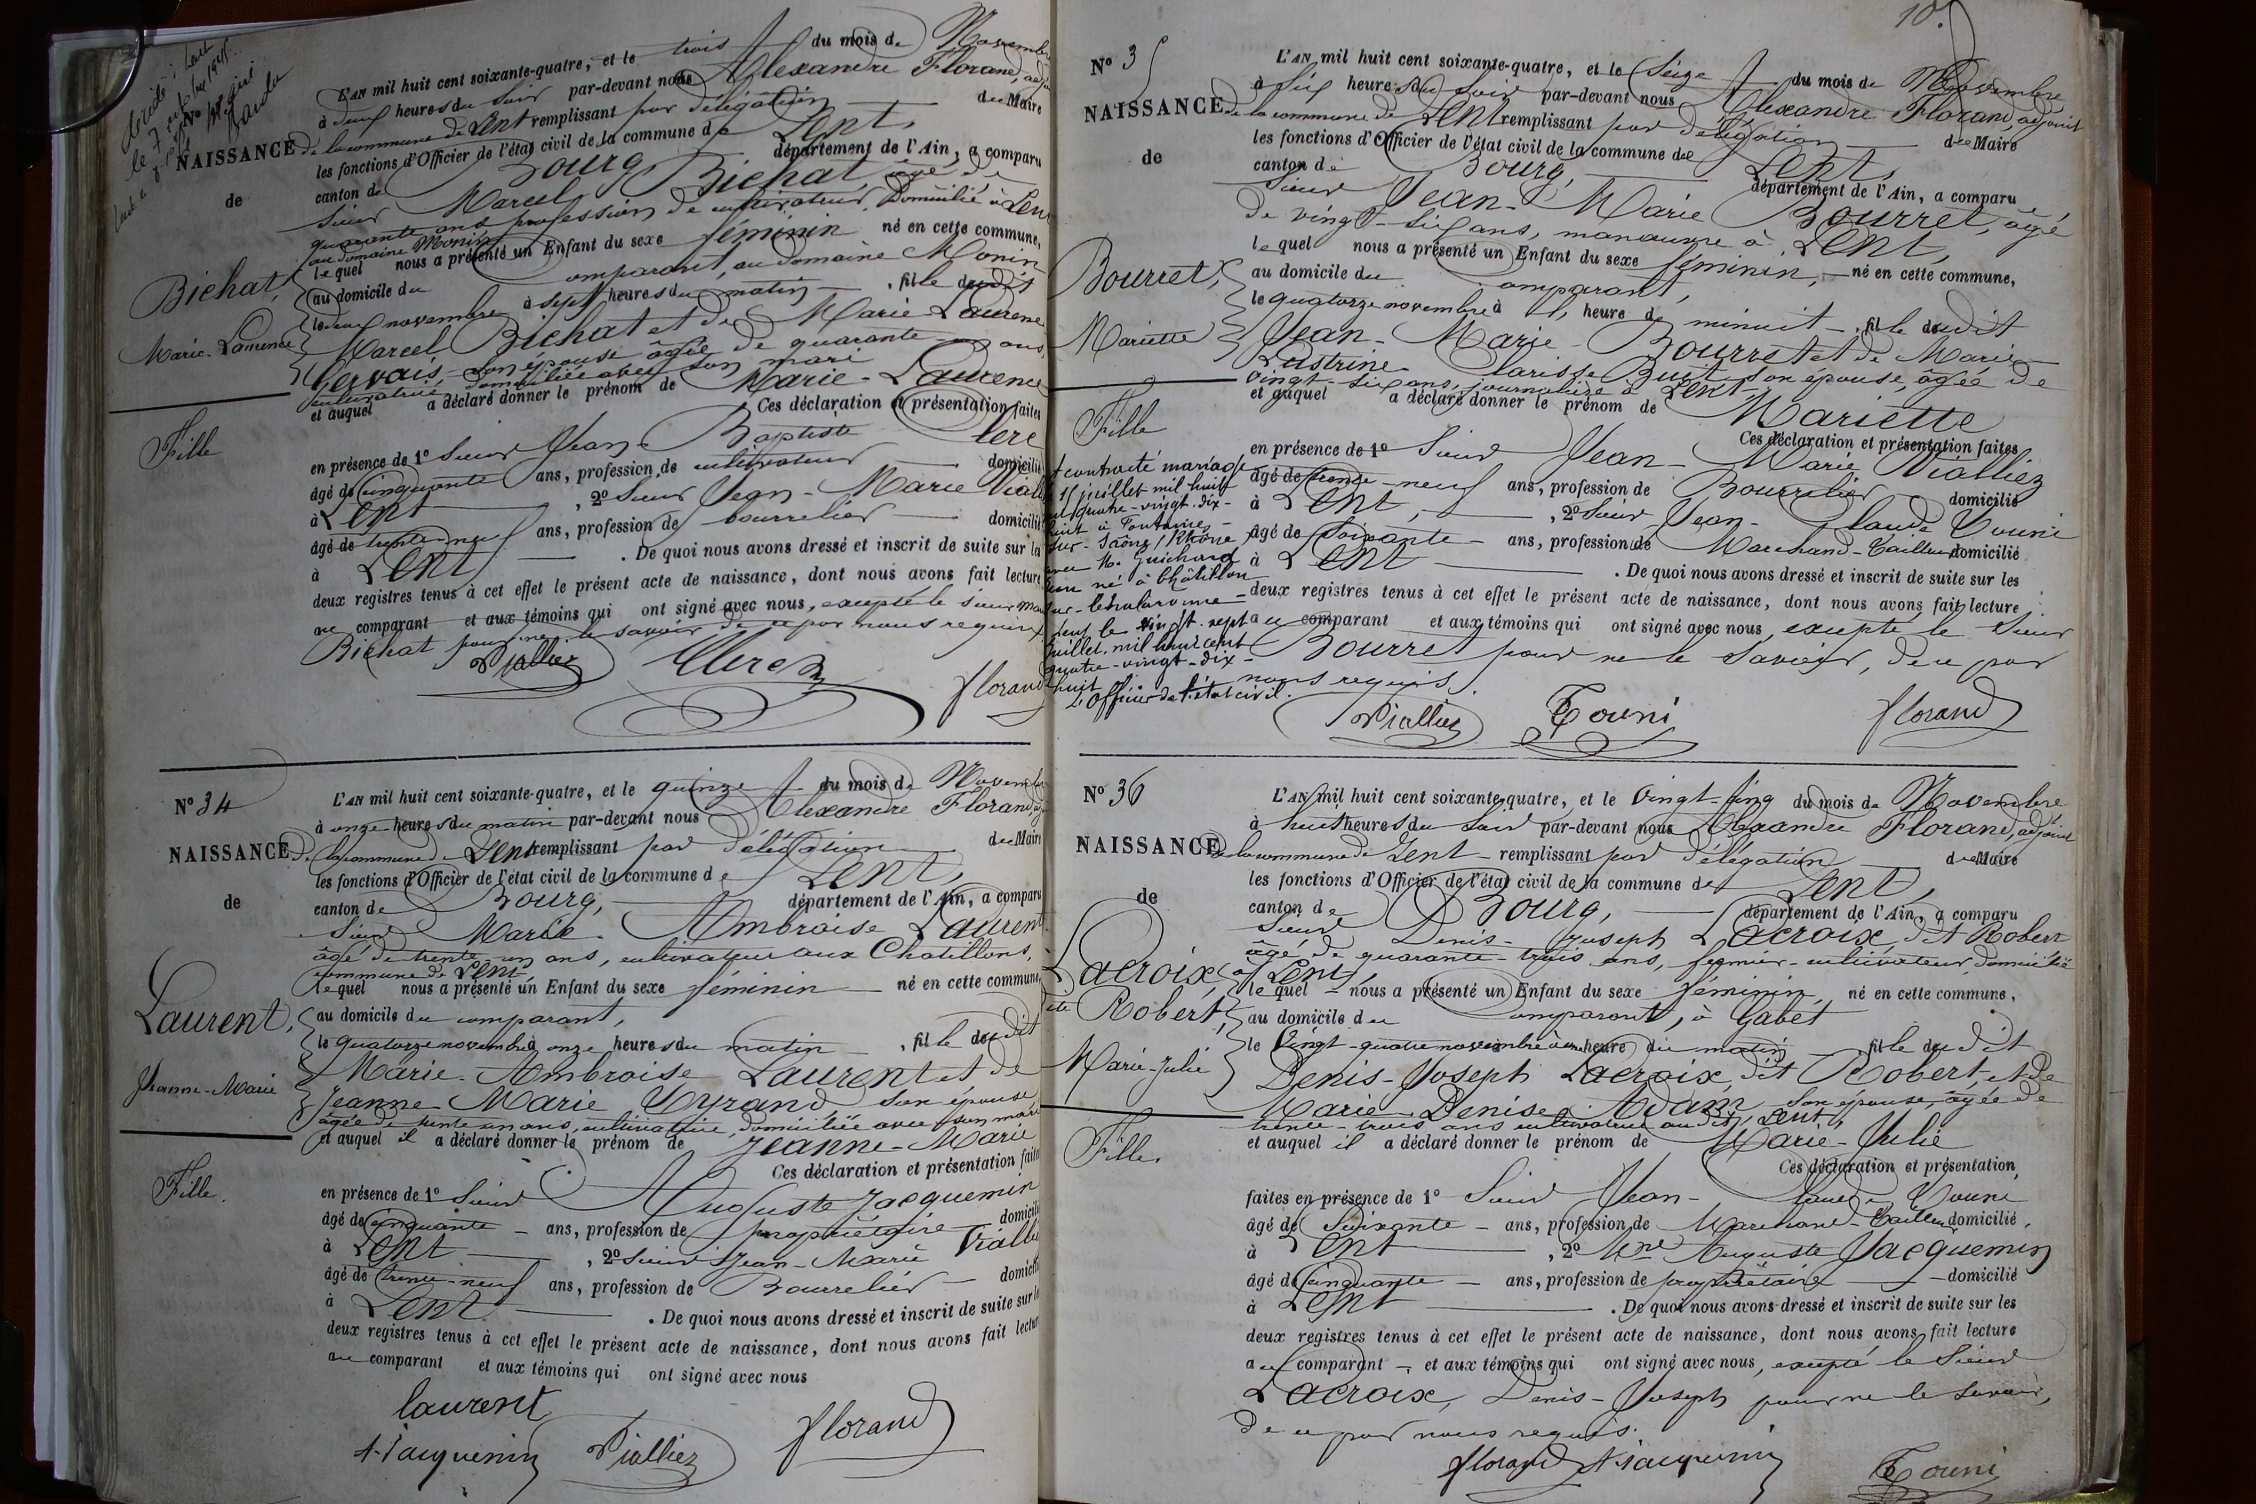 L'AN mil huit cent soixante-quatre, et le trois du mois de Novembre
à deux heures du soir par-devant nous Alexandre Florand, adjoint
de la commune de Lent remplissant par délégation du Maire
les fonctions d'Officier de l'état civil de la commune de Lent,
canton de Bourg département de l'Ain, a comparu
NAISSANCE
de
Bichat,
Marie-Laurence
Fille
sieur Marcel Bichat, âgé de
quarante ans profession de cultivateur, domicilié à Lent
au domaine Monin
lequel nous a présenté un Enfant du sexe féminin né en cette commune,
au domicile du comparant, au domaine Monin
le deux novembre à sept heures du matin, fille dudit
Marcel Bichat et de Marie Laurence
Gervais son épouse âgée de quarante ans,
cultivatrice, domiciliée avec son mari
et auquel a déclaré donner le prénom de Marie-Laurence
Ces déclaration et présentation faites
en présence de 1º Sieur Jean Baptiste Clerc
âgé de cinquante ans, profession de cultivateur domicilié
à Lent, 2º Sieur Jean-Marie Vialliez
âgé de trente neuf ans, profession de bourrelier domicilié
à Lent. De quoi nous avons dressé et inscrit de suite sur les
deux registres tenus à cet effet le présent acte de naissance, dont nous avons fait lecture
au comparant et aux témoins qui ont signé avec nous, excepté le sieur
Bichat pour ne le savoir de ce par nous requis
Vialliez Clerc Florand
Nº 34
NAISSANCE
de
Laurent,
Jeanne-Marie
Fille.
L'AN mil huit cent soixante-quatre, et le quinze du mois de Novembre
à onze heures du matin par-devant nous Alexandre Florand,
de la commune de Lent remplissant par délégation du Maire
les fonctions d'Officier de l'état civil de la commune de Lent,
canton de Bourg, département de l'Ain, a comparu
Sieur Marie-Ambroise Laurent
âgé de trente un ans, cultivateur aux Chatillons,
commune de Lent,
lequel nous a présenté un Enfant du sexe féminin né en cette commune,
au domicile du comparant,
le quatorze novembre à onze heures du matin, fille dudit
Marie-Ambroise Laurent et de
Jeanne-Marie Cyrand son épouse
âgée de trente un ans, cultivatrice, domiciliée avec son mari
et auquel il a déclaré donner le prénom de Jeanne-Marie
Ces déclaration et présentation faites
en présence de 1º Sieur Auguste Jacquemin
âgé de cinquante ans, profession de propriétaire domicilié
à Lent, 2º Sieur Jean-Marie Vialliez
âgé de trente-neuf ans, profession de Bourrelier domicilié
à Lent. De quoi nous avons dressé et inscrit de suite sur les
deux registres tenus à cet effet le présent acte de naissance, dont nous avons fait lecture
au comparant et aux témoins qui ont signé avec nous
laurent
A. Jacquemin Vialliez Florand
10.
Nº 35
NAISSANCE
de
Bourret,
Mariette
Fille
L'AN mil huit cent soixante-quatre, et le Seize du mois de Novembre
à six heures du soir par-devant nous Alexandre Florand, adjoint
de la commune de Lent remplissant par délégation du Maire
les fonctions d'Officier de l'état civil de la commune de Lent,
canton de Bourg, département de l'Ain, a comparu
Sieur Jean-Marie Bourret, âgé
de vingt-six ans, manœuvre à Lent,
lequel nous a présenté un Enfant du sexe féminin, né en cette commune,
au domicile du comparant,
le quatorze novembre à heure de minuit, fille dudit
Jean-Marie Bourret et de Marie
Clarisse Buit son épouse, âgée de
vingt-six ans, journalière à Lent,
et auquel a déclaré donner le prénom de Mariette
Ces déclaration et présentation faites
en présence de 1º Sieur Jean-Marie Vialliez
âgé de trente-neuf ans, profession de Bourrelier domicilié
à Lent, 2º Sieur Jean-Claude Touni
âgé de Soixante ans, profession de Marchand-Tailleur domicilié
à Lent. De quoi nous avons dressé et inscrit de suite sur les
deux registres tenus à cet effet le présent acte de naissance, dont nous avons fait lecture
au comparant et aux témoins qui ont signé avec nous, excepté le Sieur
Bourret pour ne le savoir, de ce par
nous requis.
Vialliez Touni Florand
A contracté mariage
juillet mil huit
cent quatre-vingt-dix-
huit à Fontaines-
sur-Saône (Rhône)
avec M. Guichard
né à Châtillon
sur-Chalaronne
Lent le vingt-sept
juillet mil huit cent
quatre-vingt-dix-
huit
L'Officier de l'état civil.
Nº 36
NAISSANCE
de
Lacroix,
dit Robert,
Marie-Julie
Fille.
L'AN mil huit cent soixante-quatre, et le Vingt-cinq du mois de Novembre
à huit heures du soir par-devant nous Alexandre Florand, adjoint
de la commune de Lent remplissant par délégation du Maire
les fonctions d'Officier de l'état civil de la commune de Lent,
canton de Bourg, département de l'Ain, a comparu
Sieur Denis-Joseph Lacroix, dit Robert
âgé de quarante-trois ans, fermier-cultivateur, domicilié
à Lent,
lequel nous a présenté un Enfant du sexe féminin, né en cette commune,
au domicile du comparant, à Gabet
le Vingt-quatre novembre à une heure du matin fille dudit
Denis-Joseph Lacroix, dit Robert, et de
Marie-Denise Adam, son épouse, âgée de
trente-trois ans cultivatrice audit Lent,
et auquel il a déclaré donner le prénom de Marie-Julie
Ces déclaration et présentation
faites en présence de 1º Sieur Jean-Claude Touni
âgé de Soixante ans, profession de Marchand-Tailleur domicilié
à Lent, 2º Auguste Jacquemin
âgé de cinquante ans, profession de propriétaire domicilié
à Lent. De quoi nous avons dressé et inscrit de suite sur les
deux registres tenus à cet effet le présent acte de naissance, dont nous avons fait lecture
au comparant et aux témoins qui ont signé avec nous, excepté le Sieur
Lacroix, Denis-Joseph pour ne le savoir,
de ce par nous requis.
Florand A. Jacquemin Touni